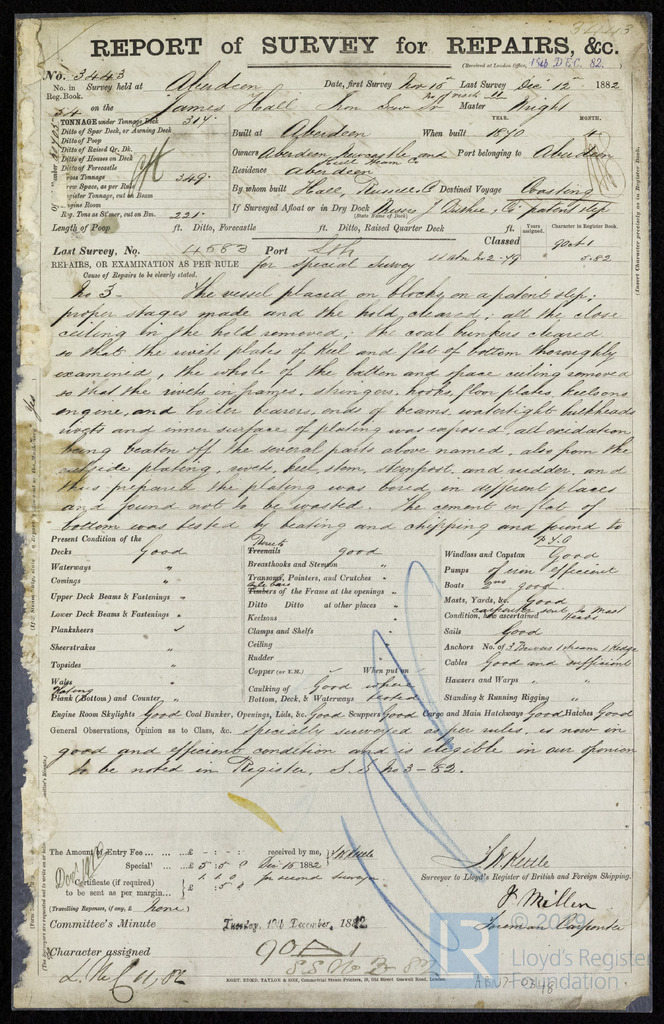 REPORT of SURVEY for REPAIRS, &c.
(Received at London Office, 18th DEC. 82.)
No. 3443
No. in Reg. Book.
Survey held at Aberdeen Date, first Survey Nov 15 Last Survey Dec 12 1882
on the James Hall Iron Screw Sr Master Wright
TONNAGE under Tonnage Deck 314
Ditto of Spar Deck, or Awning Deck
Ditto of Poop
Ditto of Raised Qr. Dk.
Ditto of Houses on Deck
Ditto of Forecastle
Gross Tonnage 349
Crew Space, as per Rule
Register Tonnage, cut on Beam
Engine Room
Rg. Tons as St'mer, cut on Bm. 221
YEAR. MONTH.
Built at Aberdeen When built 1870 4
Owners Aberdeen Newcastle and Hull Steam Co Port belonging to Aberdeen
Residence Aberdeen
By whom built Hall, Russell & Co Destined Voyage Coasting
If Surveyed Afloat or in Dry Dock Messrs J Duthie, & Co patent slip
(State Name of Dock)
Length of Poop ft. Ditto, Forecastle ft. Ditto, Raised Quarter Deck ft.
Years assigned. Character in Register Book.
Last Survey, No. 4683 Port Lth Classed 90A1
5.82
REPAIRS, OR EXAMINATION AS PER RULE for special survey
Cause of Repairs to be clearly stated.
No 3 - The vessel placed on blocks on a patent slip;
proper stages made and the hold cleared; all the close
ceiling in the hold removed; the coal bunkers cleared
so that the rivets plates of keel and flat of bottom thoroughly
examined, the whole of the batten and space ceiling removed
so that the rivets in frames, stringers, hooks, floor plates, keelsons
engine, and boiler bearers, ends of beams, watertight bulkheads
rivets and inner surface of plating was exposed, all oxidation
being beaten off the several parts above named, also from the
outside plating, rivets, keel, stem, sternpost, and rudder, and
thus prepared the plating was bored in different places
and found not to be wasted. The cement in flat of
bottom was tested by beating and chipping and found to
P.T.O
Present Condition of the
Decks Good
Waterways "
Comings "
Upper Deck Beams & Fastenings "
Lower Deck Beams & Fastenings "
Planksheers "
Sheerstrakes "
Topsides "
Wales "
Plating
Plank (Bottom) and Counter "
Rivets
Treenails good
Breasthooks and Stemson "
Transoms, Pointers, and Crutches "
Timbers of the Frame at the openings "
Ditto Ditto at other places "
Keelsons "
Clamps and Shelfs "
Ceiling "
Rudder "
Copper (or Y.M.) When put on
Caulking of Good where
Bottom, Deck, & Waterways tested
Windlass and Capstan Good
Pumps of iron efficient
Boats good
Masts, Yards, &c. Good
Condition, how ascertained carpenter sent to Mast Heads
Sails Good
Anchors No. of 3 Bowers 1 Stream 1 Kedge
Cables Good and sufficient
Hawsers and Warps "
Standing & Running Rigging "
Engine Room Skylights Good Coal Bunker, Openings, Lids, &c. Good Scuppers Good Cargo and Main Hatchways Good Hatches Good
General Observations, Opinion as to Class, &c. Specially surveyed as per rules, is now in
good and efficient condition and is eligible in our opinion
to be noted in Register. S.S. No 3-82.
The Amount of Entry Fee ... ...£ - : - : received by me,
Special ... ..£ 5 : 5 : 0 Dec 15 1882
1 : 1 : 0 for second surveyor
Certificate (if required) £ : 5 : 0
to be sent as per margin...
(Travelling Expenses, if any, £ None)
Surveyor to Lloyd's Register of British and Foreign Shipping.
Foreman Carpenter
Committee's Minute Tuesday, 19th December, 1882
Character assigned 90A1
S S No 3-82
KENT, EDMD. TAYLOR & SON, Commercial Steam Printers, 13, Old Street, Goswell Road, London.
LR
© 2019
Lloyd's Register
Foundation